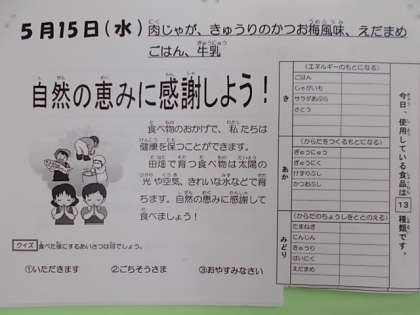 5月15日(水) 肉じゃが、きゅうりのかつお梅風味、えだまめ
ごはん、牛乳
自然の恵みに感謝しよう！
食べ物のおかげで、私たちは
健康を保つことができます。
田畑で育つ食べ物は太陽の
光や空気、きれいな水などで育
ちます。自然の恵みに感謝して
食べましょう！
クイズ 食べた後にするあいさつは何でしょう。
①いただきます ②ごちそうさま ③おやすみなさい
き
(エネルギーのもとになる)
ごはん
じゃがいも
サラダあぶら
さとう
あか
(からだをつくるもとになる)
ぎゅうにゅう
ぎゅうにく
けずりぶし
かつおぶし
みどり
(からだのちょうしをととのえる)
たまねぎ
にんじん
きゅうり
ばいにく
えだまめ
今日、使用している食品は13種類です。